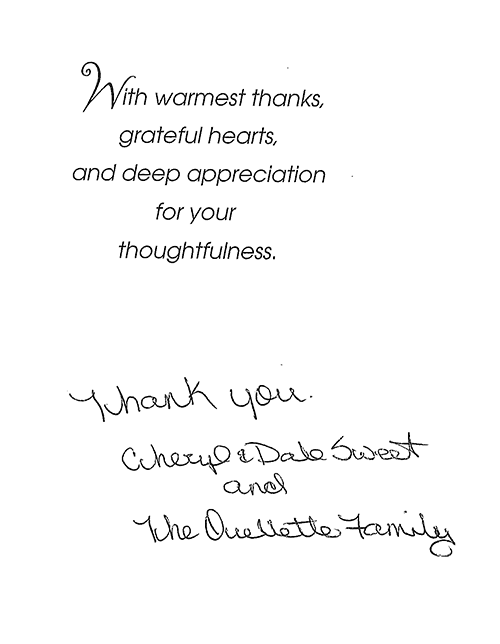 With warmest thanks,
grateful hearts,
and deep appreciation
for your
thoughtfulness.
Thank you.
Cheryl & Dale Sweet
and
The Ouellette Family